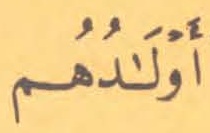 أَوْلَـٰدُهُم